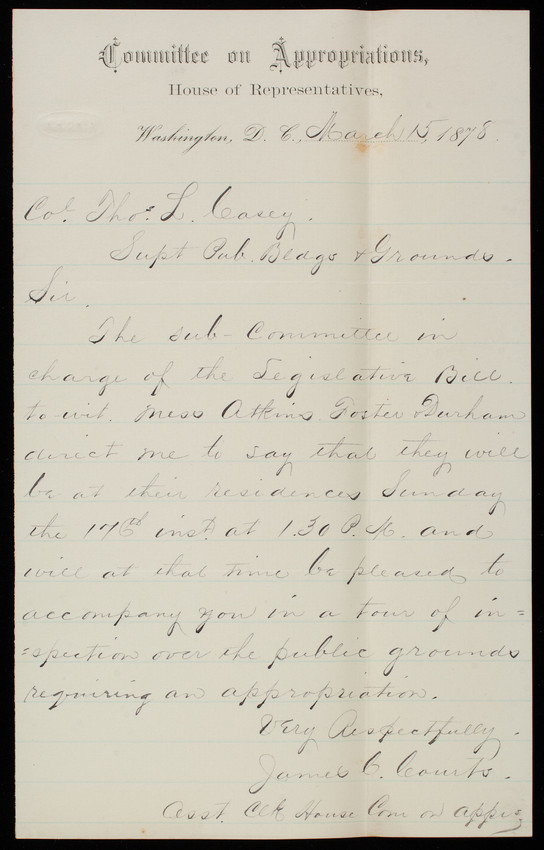 Committee on Appropriations,
House of Representatives,
Washington, D. C., March 15, 1878.
Col. Thos. L. Casey.
Supt Pub. Bldgs & Grounds.
Sir.
The sub-Committee in
charge of the Legislative Bill.
to-wit. Mess Atkins Foster & Durham
direct me to say that they will
be at their residences Sunday
the 17th inst. at 1.30 P.M. and
will at that time be pleased to
accompany you in a tour of in=
=spection over the public grounds
requiring an appropriation.
Very Respectfully.
James C. Courts.
Asst. Clk House Com on Appns